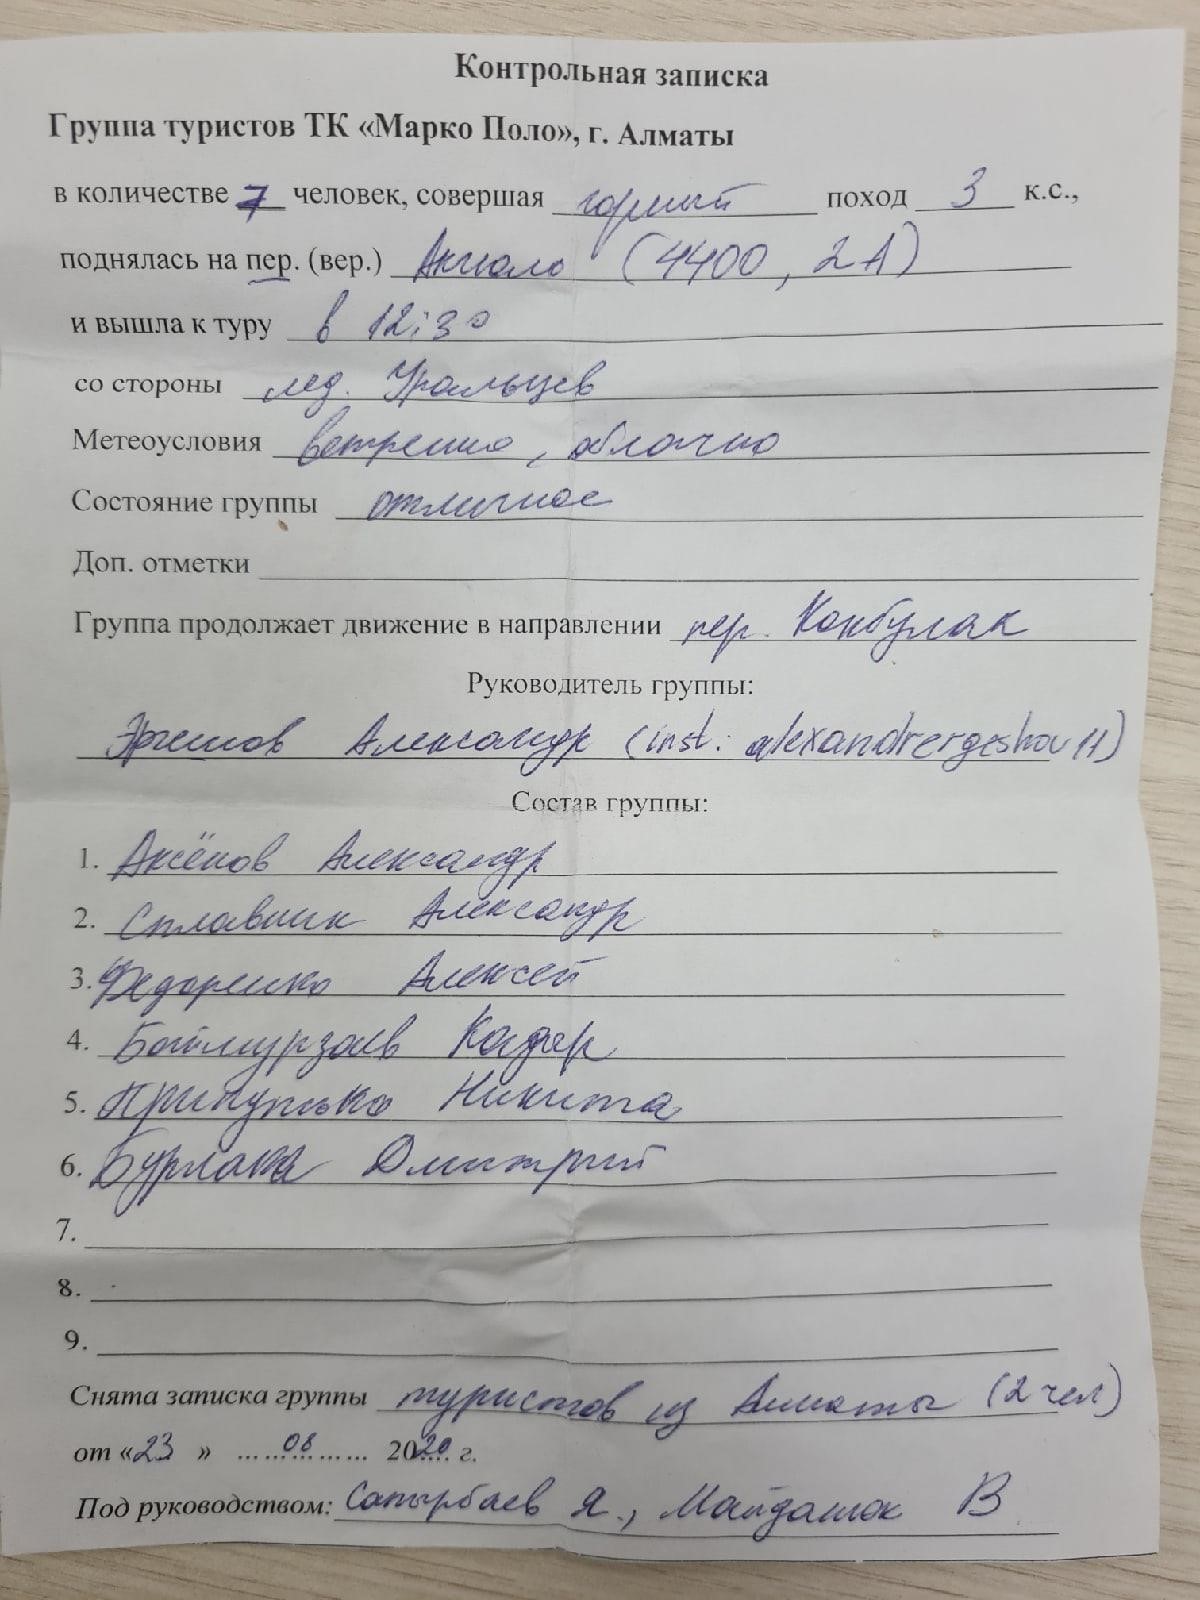 Контрольная записка
Группа туристов ТК «Марко Поло», г. Алматы
в количестве 7 человек, совершая горный поход 3 к.с.,
поднялась на пер. (вер.) Аксоло (4400, 2А)
и вышла к туру в 12:30
со стороны лед. Уральцев
Метеоусловия ветренно, облачно
Состояние группы отличное
Доп. отметки
Группа продолжает движение в направлении пер. Кокбулак
Руководитель группы:
Эргешов Александр (inst: alexandrergeshov11)
Состав группы:
1. Аксёнов Александр
2. Сплавник Александр
3. Федоренко Алексей
4. Баймурзаев Кадыр
5. Припутько Никита
6. Бурлака Дмитрий
7.
8.
9.
Снята записка группы туристов из Алматы (2 чел)
от «23» ...08... 2020 г.
Под руководством: Сатырбаев Я., Майданюк В